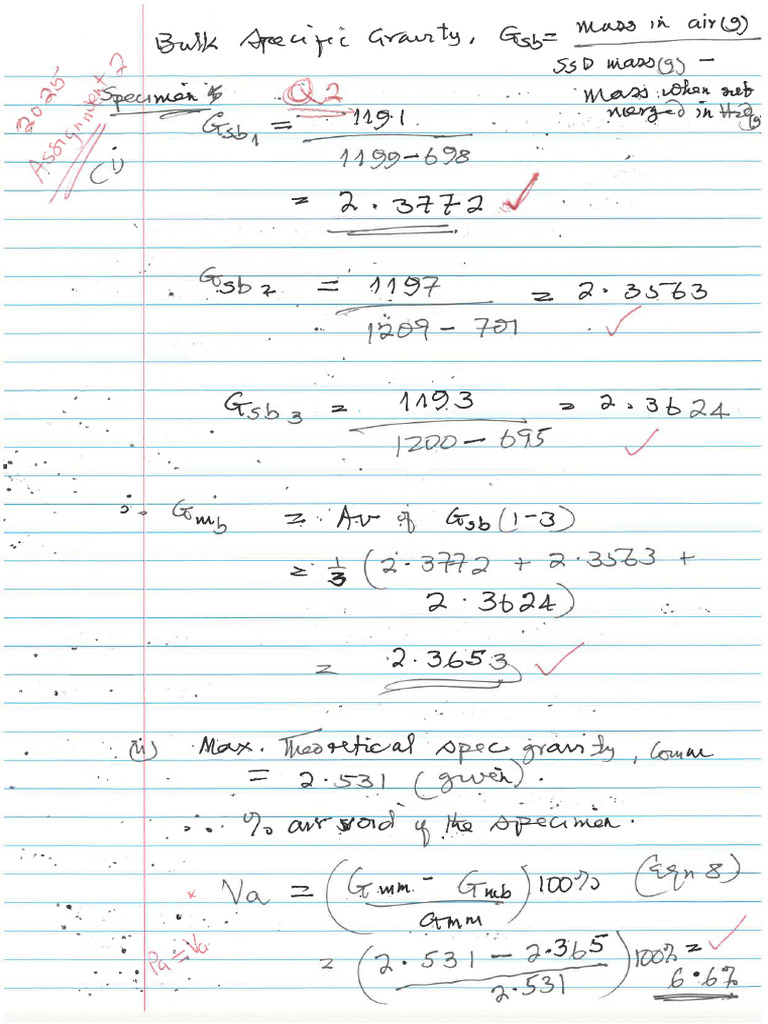 Bulk Specific Gravity, Gsb = mass in air(g)
SSD mass(g) – mass when submerged in H2O(g)
2025
Assignment 7
Specimen
Q2
(i)
Gsb1 = 1191
1199–698
= 2.3772 ✓
Gsb2 = 1197 = 2.3563
1209 – 701 ✓
Gsb3 = 1193 = 2.3624
1200 – 695 ✓
∴ Gmb = Av of Gsb (1-3)
= 1/3 (2.3772 + 2.3563 +
2.3624)
= 2.3653 ✓
(ii) Max. Theoretical spec gravity, Gmm
= 2.531 (given).
∴ % air void of the specimen.
Va = (Gmm – Gmb) 100% (Eqn 8)
Gmm
Pa = Va
= (2.531 – 2.365) 100% = ✓
2.531 6.6%